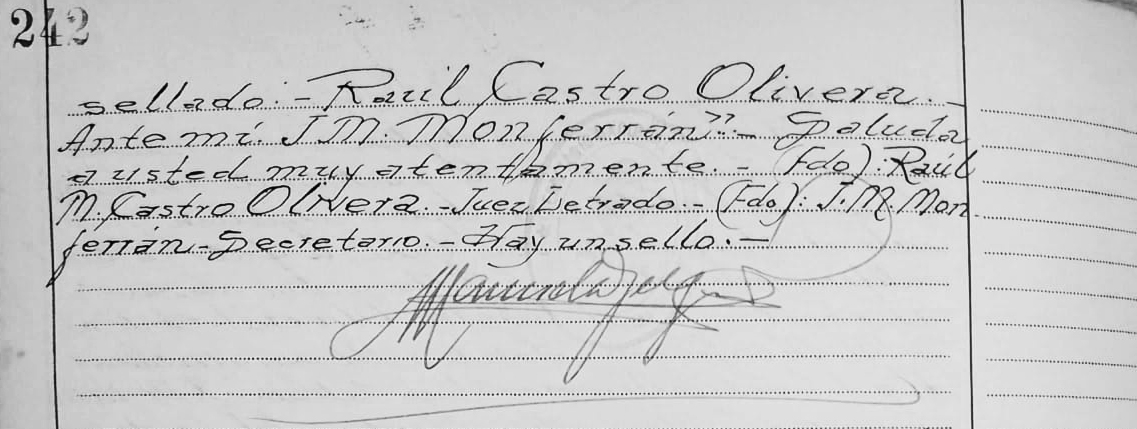 242
sellado.- Raúl Castro Olivera.-
Ante mí. J.M. Monferrán".- Saluda
a usted muy atentamente.- (Fdo): Raúl
M. Castro Olivera.-Juez Letrado.-(Fdo): J.M. Mon
ferrán-Secretario.-Hay un sello.-
Manuela